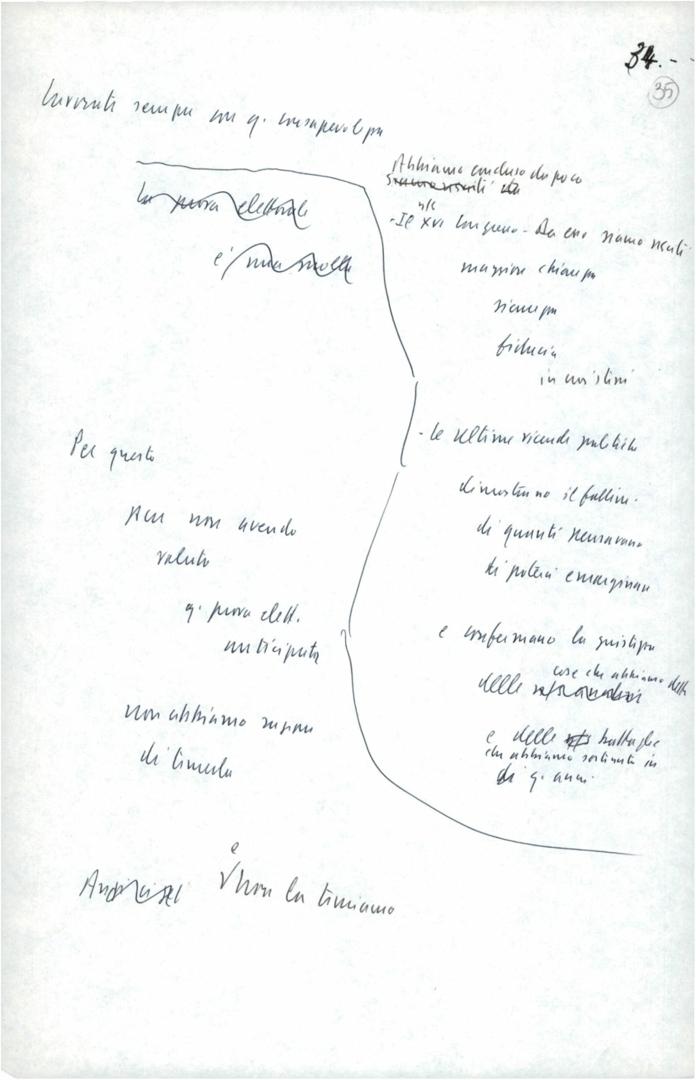 34.--
35
Lavorate sempre con q. consapevolezza
la prova elettorale
è una molla
Abbiamo concluso da poco
siamo usciti da
n/s
- Il XVI Congresso - Da esso siamo usciti
maggiore chiarezza
sicurezza
fiducia
in noi stessi
- le ultime vicende politiche
dimostrano il fallim.
di quanti pensavano
di poterci emarginare
e confermano la giustezza
cose che abbiamo detto
delle
e delle battaglie
che abbiamo sostenuto in
di q. anni.
Per questo
pur non avendo
voluto
q. prova elett.
anticipata
non abbiamo ragione
di temerla
e
non la temiamo